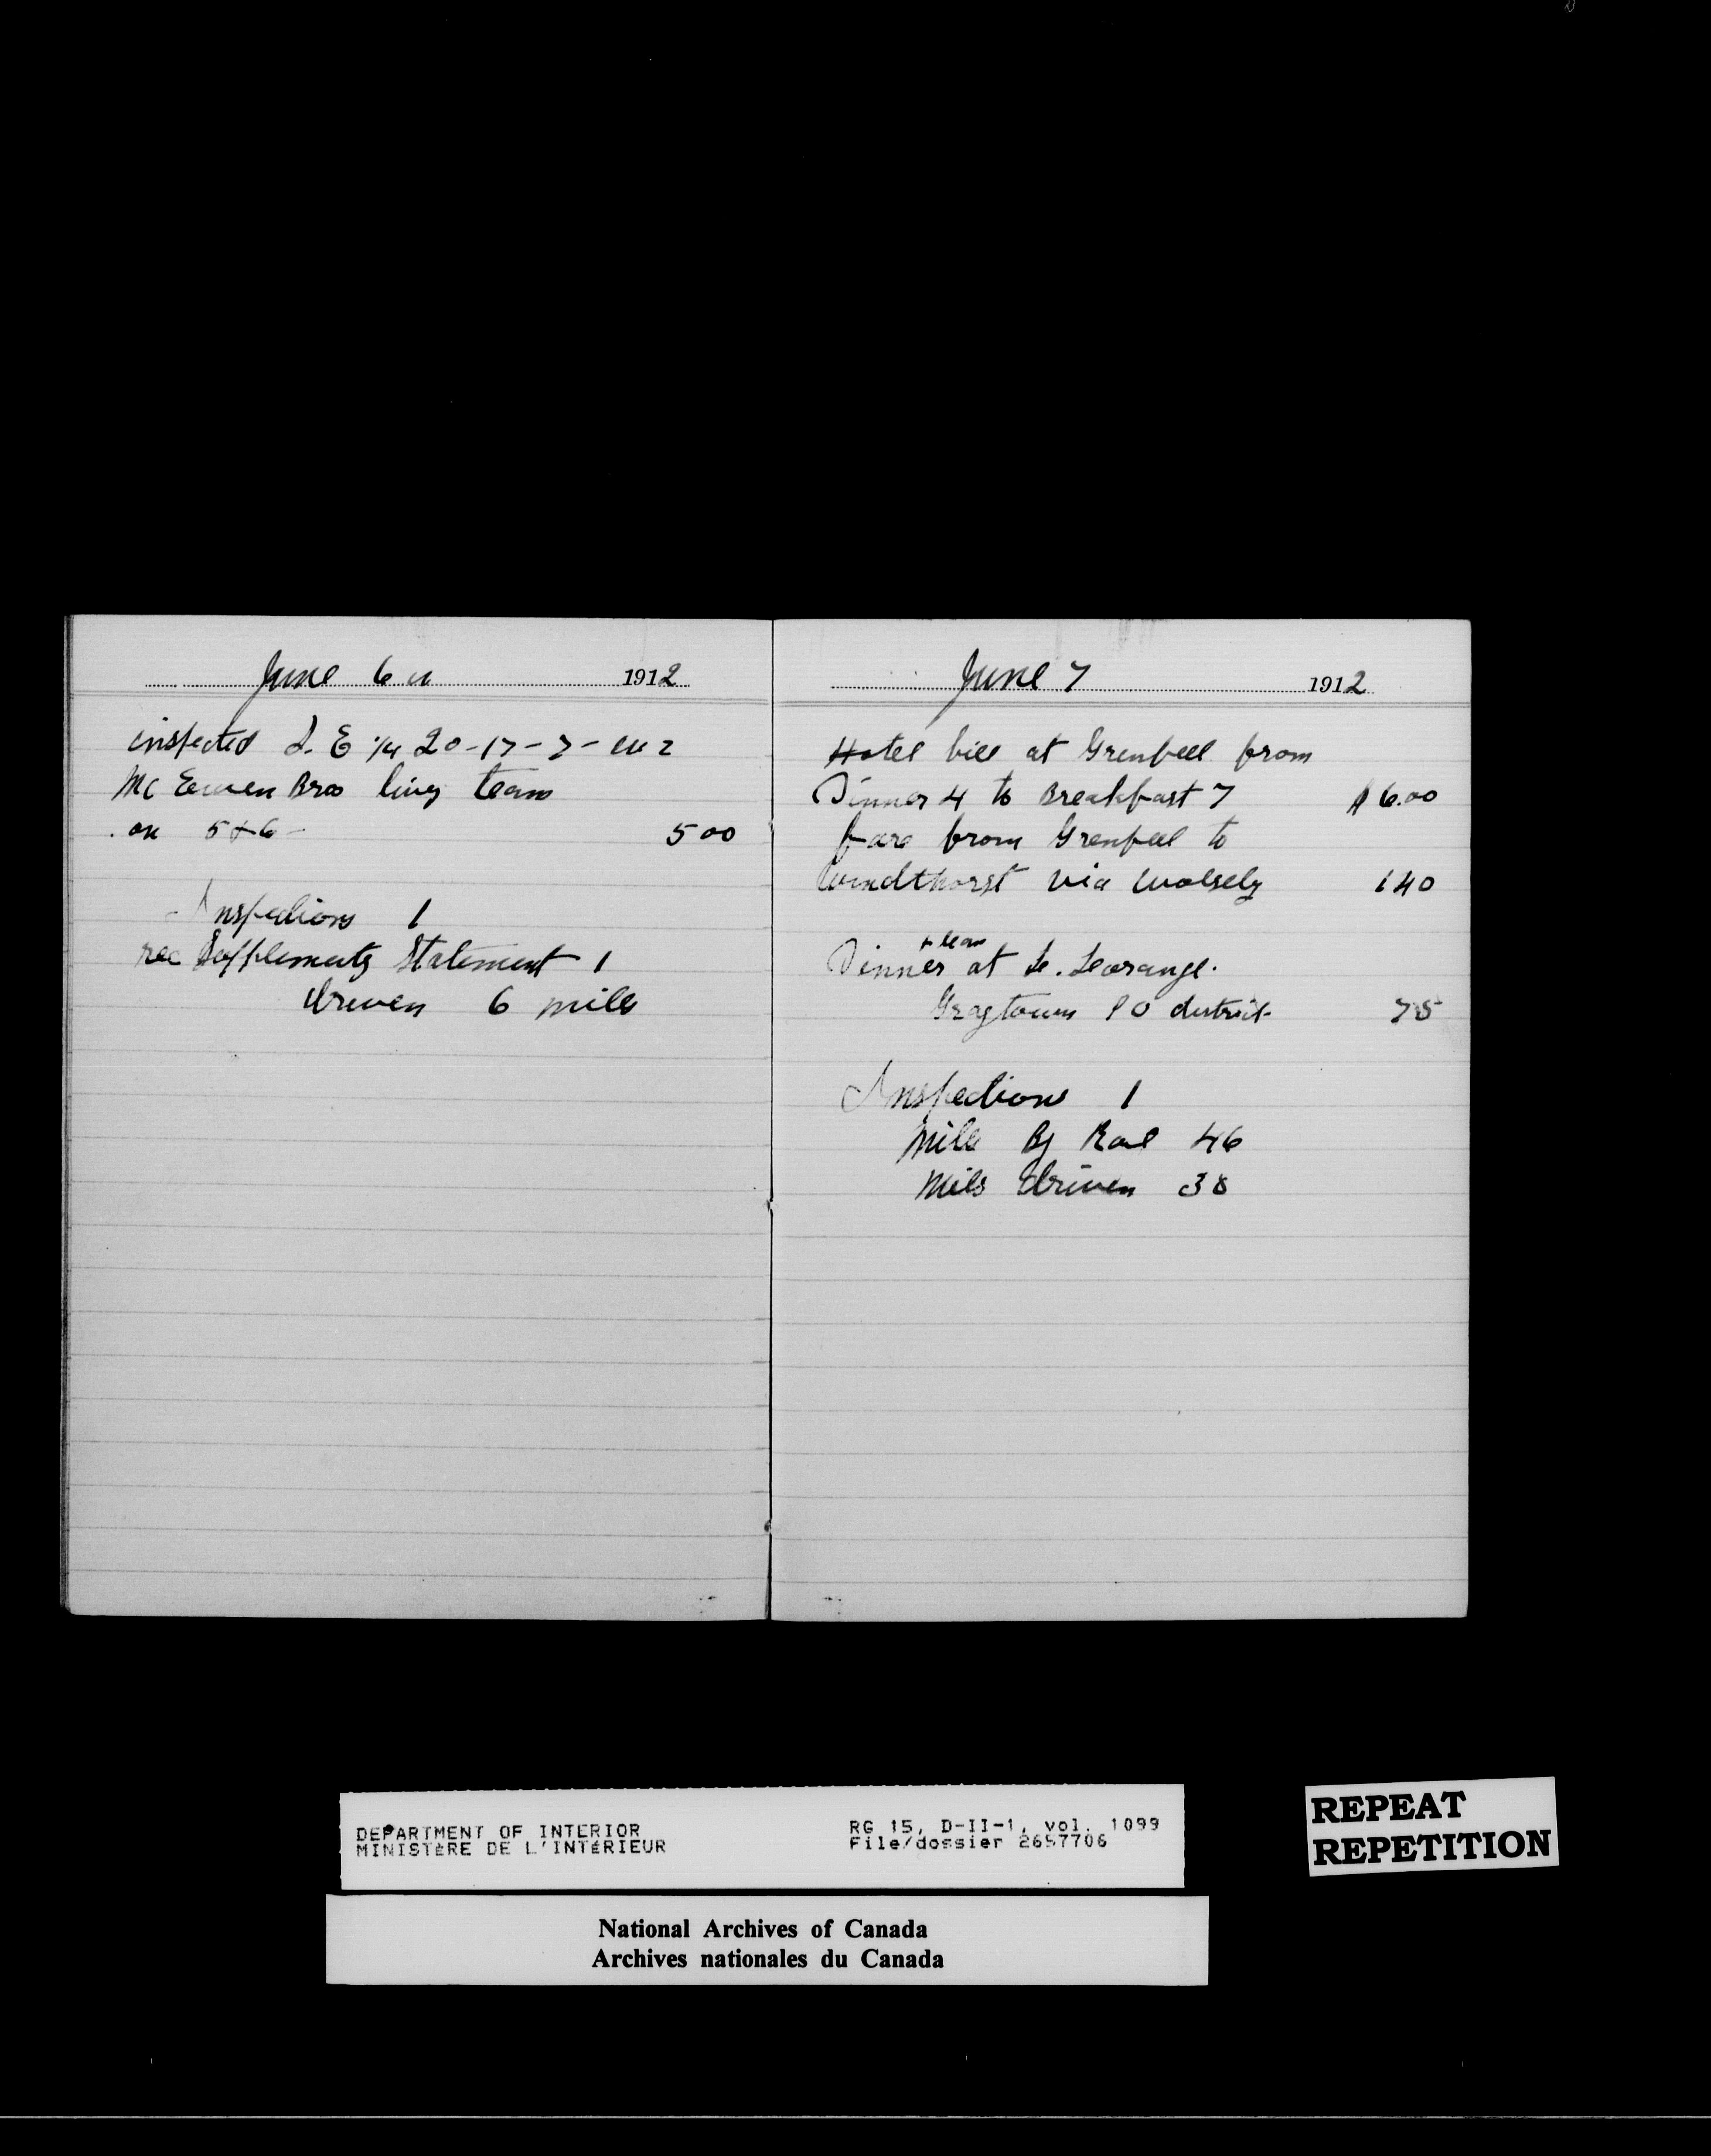 June 6 1912
inspected S. E 1/4 20-17-7-W 2
Mc Ewen Bros livy team
on 5 & 6 - 5 00
Inspections 1
rec Supplementy Statement 1
driven 6 mile
June 7 1912
Hotel bill at Grenfell from
Dinner 4 to Breakfast 7 $ 6.00
fare from Grenfell to
Windthorst via Wolsely 1 40
Dinner at
Graytown P O district 75
Inspections 1
Mile By Rail 46
Mils driven 38
DEPARTMENT OF INTERIOR
MINISTÈRE DE L'INTÉRIEUR
RG 15, D-II-1, vol. 1099
File/dossier 2657706
REPEAT
REPETITION
National Archives of Canada
Archives nationales du Canada